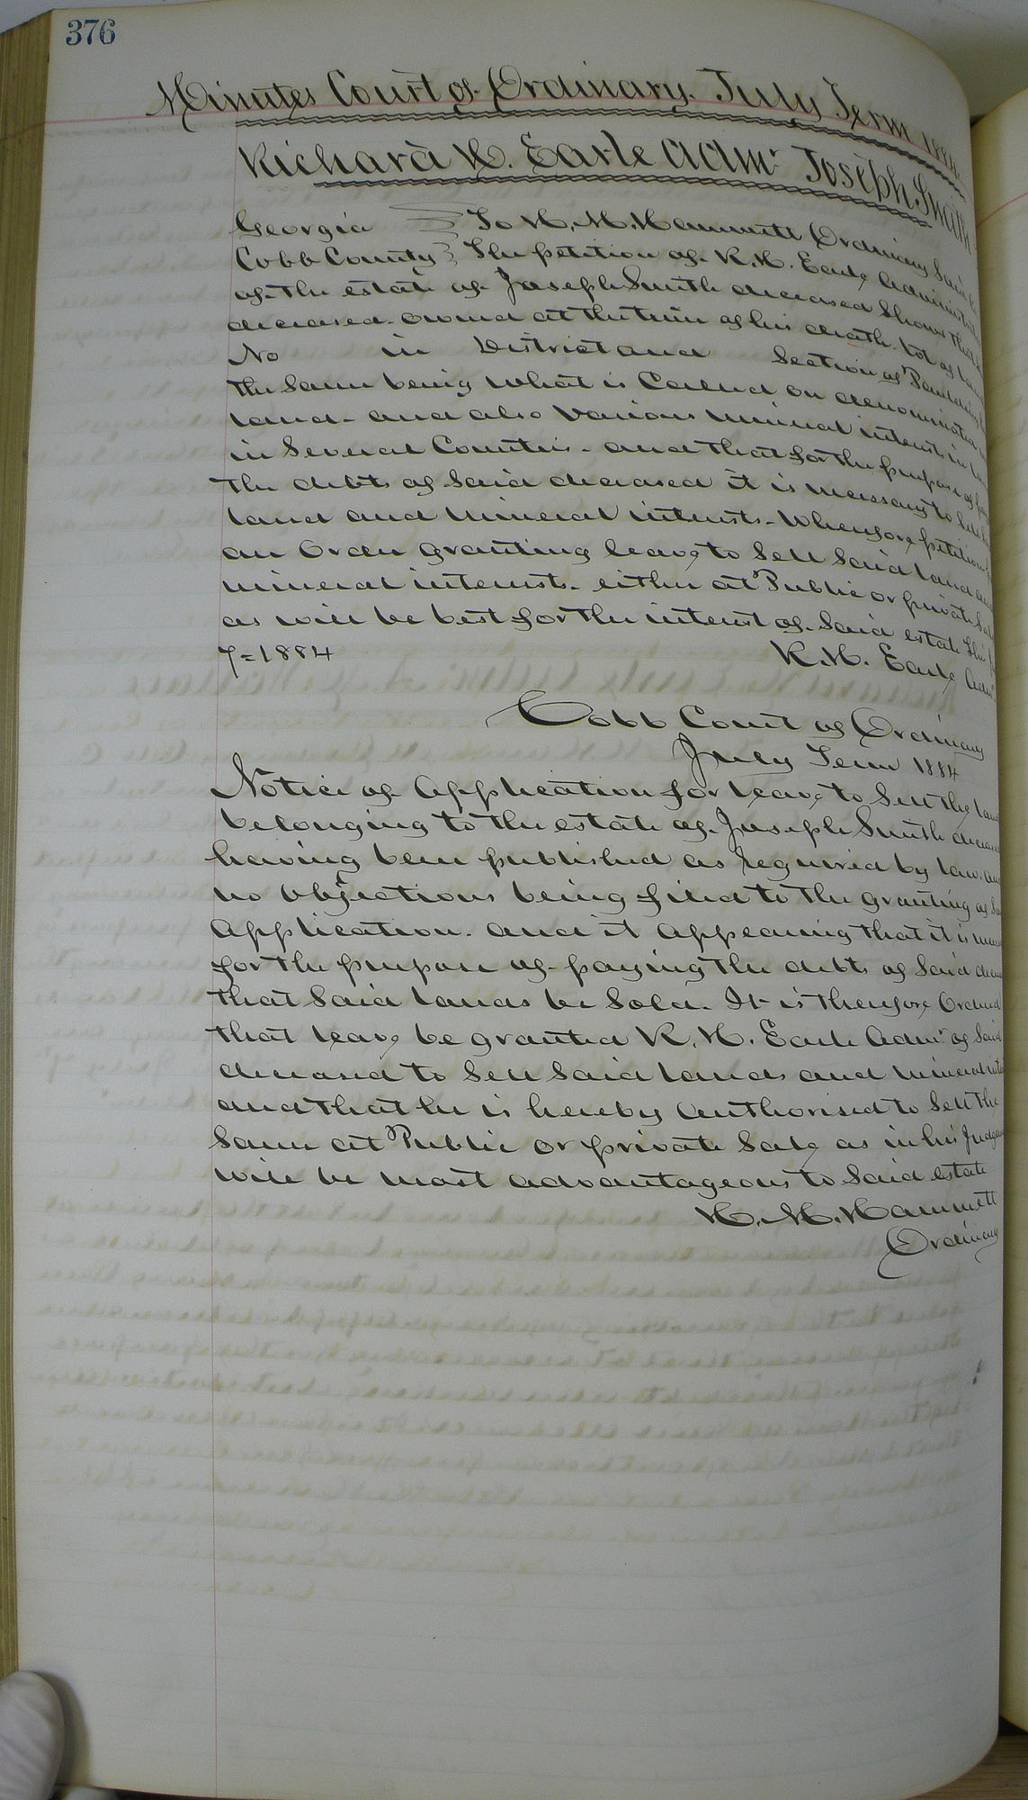 376
Minutes Court of Ordinary. July Term 1884
Richard H. Earle Admr Joseph Smith
Georgia To H. M. Hammett Ordinary Said
Cobb County The petition of R. H. Earle Administrator
of the estate of Joseph Smith deceased Shows that
deceased owned at the time of his death lot of land
No in District and Section of Paulding
the same being what is Called or denominated
land and also Various mineral interests in
in Several Counties - and that for the purpose of
the debts of said deceased it is necessary to Sell
land and mineral interests - Wherefore petitioner
an Order granting leave to Sell Said land and
mineral interests - either at Public or private Sale
as will be best for the interest of Said estate
7=1884 R. H. Earle Admr
Cobb Court of Ordinary
July Term 1884
Notice of Application for leave to Sell the land
belonging to the estate of Joseph Smith deceased
having been published as required by law and
no Objections being filed to the granting of
Application. and it appearing that it is
for the purpose of paying the debts of Said
that Said lands be Sold. It is therefore Ordered
that leave be granted R. H. Earle Admr of Said
deceased to Sell Said lands and mineral
and that he is hereby Authorised to Sell the
Same at Public or private Sale as in his
will be most advantageous to Said estate
H. M. Hammett
Ordinary